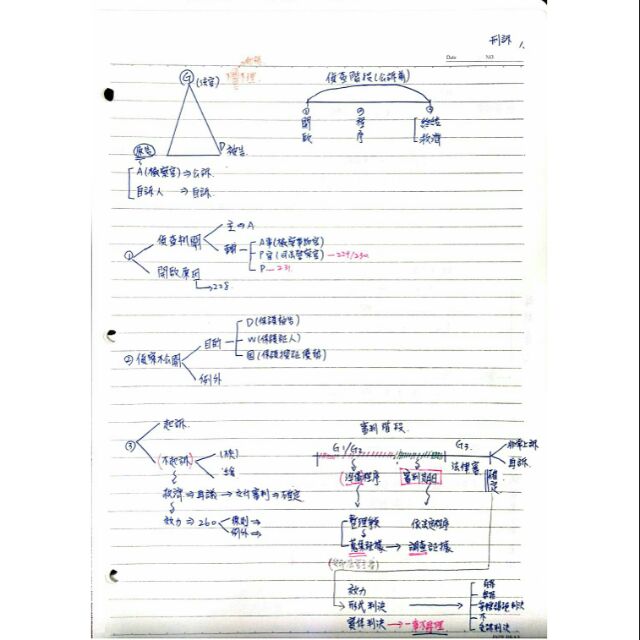 刑訴 1.
Date NO.
G (法官)
不告不理
偵查階段(公訴為)
① ② ③
開啟 程序 終結
救濟
原告 D被告
A(檢察官)⇒公訴
自訴人 ⇒自訴
① 偵查機關 主⇒A
輔 A事(檢察事務官)
P官(司法警察官) —229/230
P —231
開啟原因
→228
② 偵查不公開 目的 D(保護被告)
W(保護證人)
國(保護搜證優勢)
例外
③ 起訴
(不起訴)
救濟⇒再議→交付審判→確定
效力⇒260 原則⇒
例外⇒
審判階段
G1/G2 G3 非常上訴
再訴
準備程序 審判期日 法律審 確定
整理爭點 依法定程序
蒐集證據 → 調查證據
效力
形式判決
實體判決→一事不再理
免訴
管轄錯誤判決
不